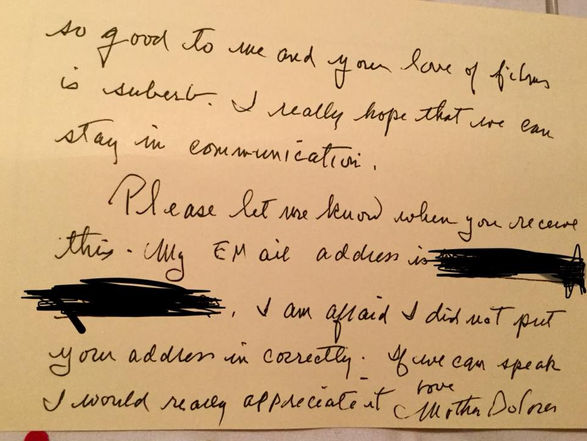 so good to me and your love of films
is suberb. I really hope that we can
stay in communication.
Please let me know when you receive
this. My EMail address is
. I am afraid I did not put
your address in correctly. If we can speak
I would really appreciate it love
Mother Dolores